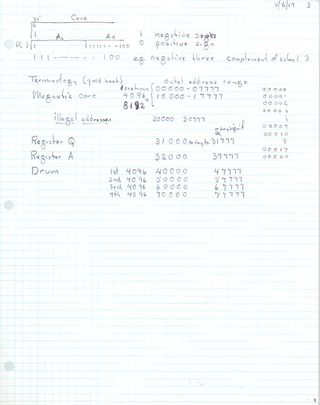 3
Core
1 negative sign
0 positive sign
111 - - - - - 100 eg negative three complement of octal 3
Termology (gold book) octal address range
Magnetic core 4096 00000 - 07777
8192 10000 - 17777
illegal addresses 20000 30777
Register Q 31000 31777
Register A 32000 37777
Drum 1st 4096 40000 47777
2nd 4096 50000 57777
3rd 4096 60000 67777
4th 4096 70000 77777
00000
00001
00002
00007
00010
00017
00020